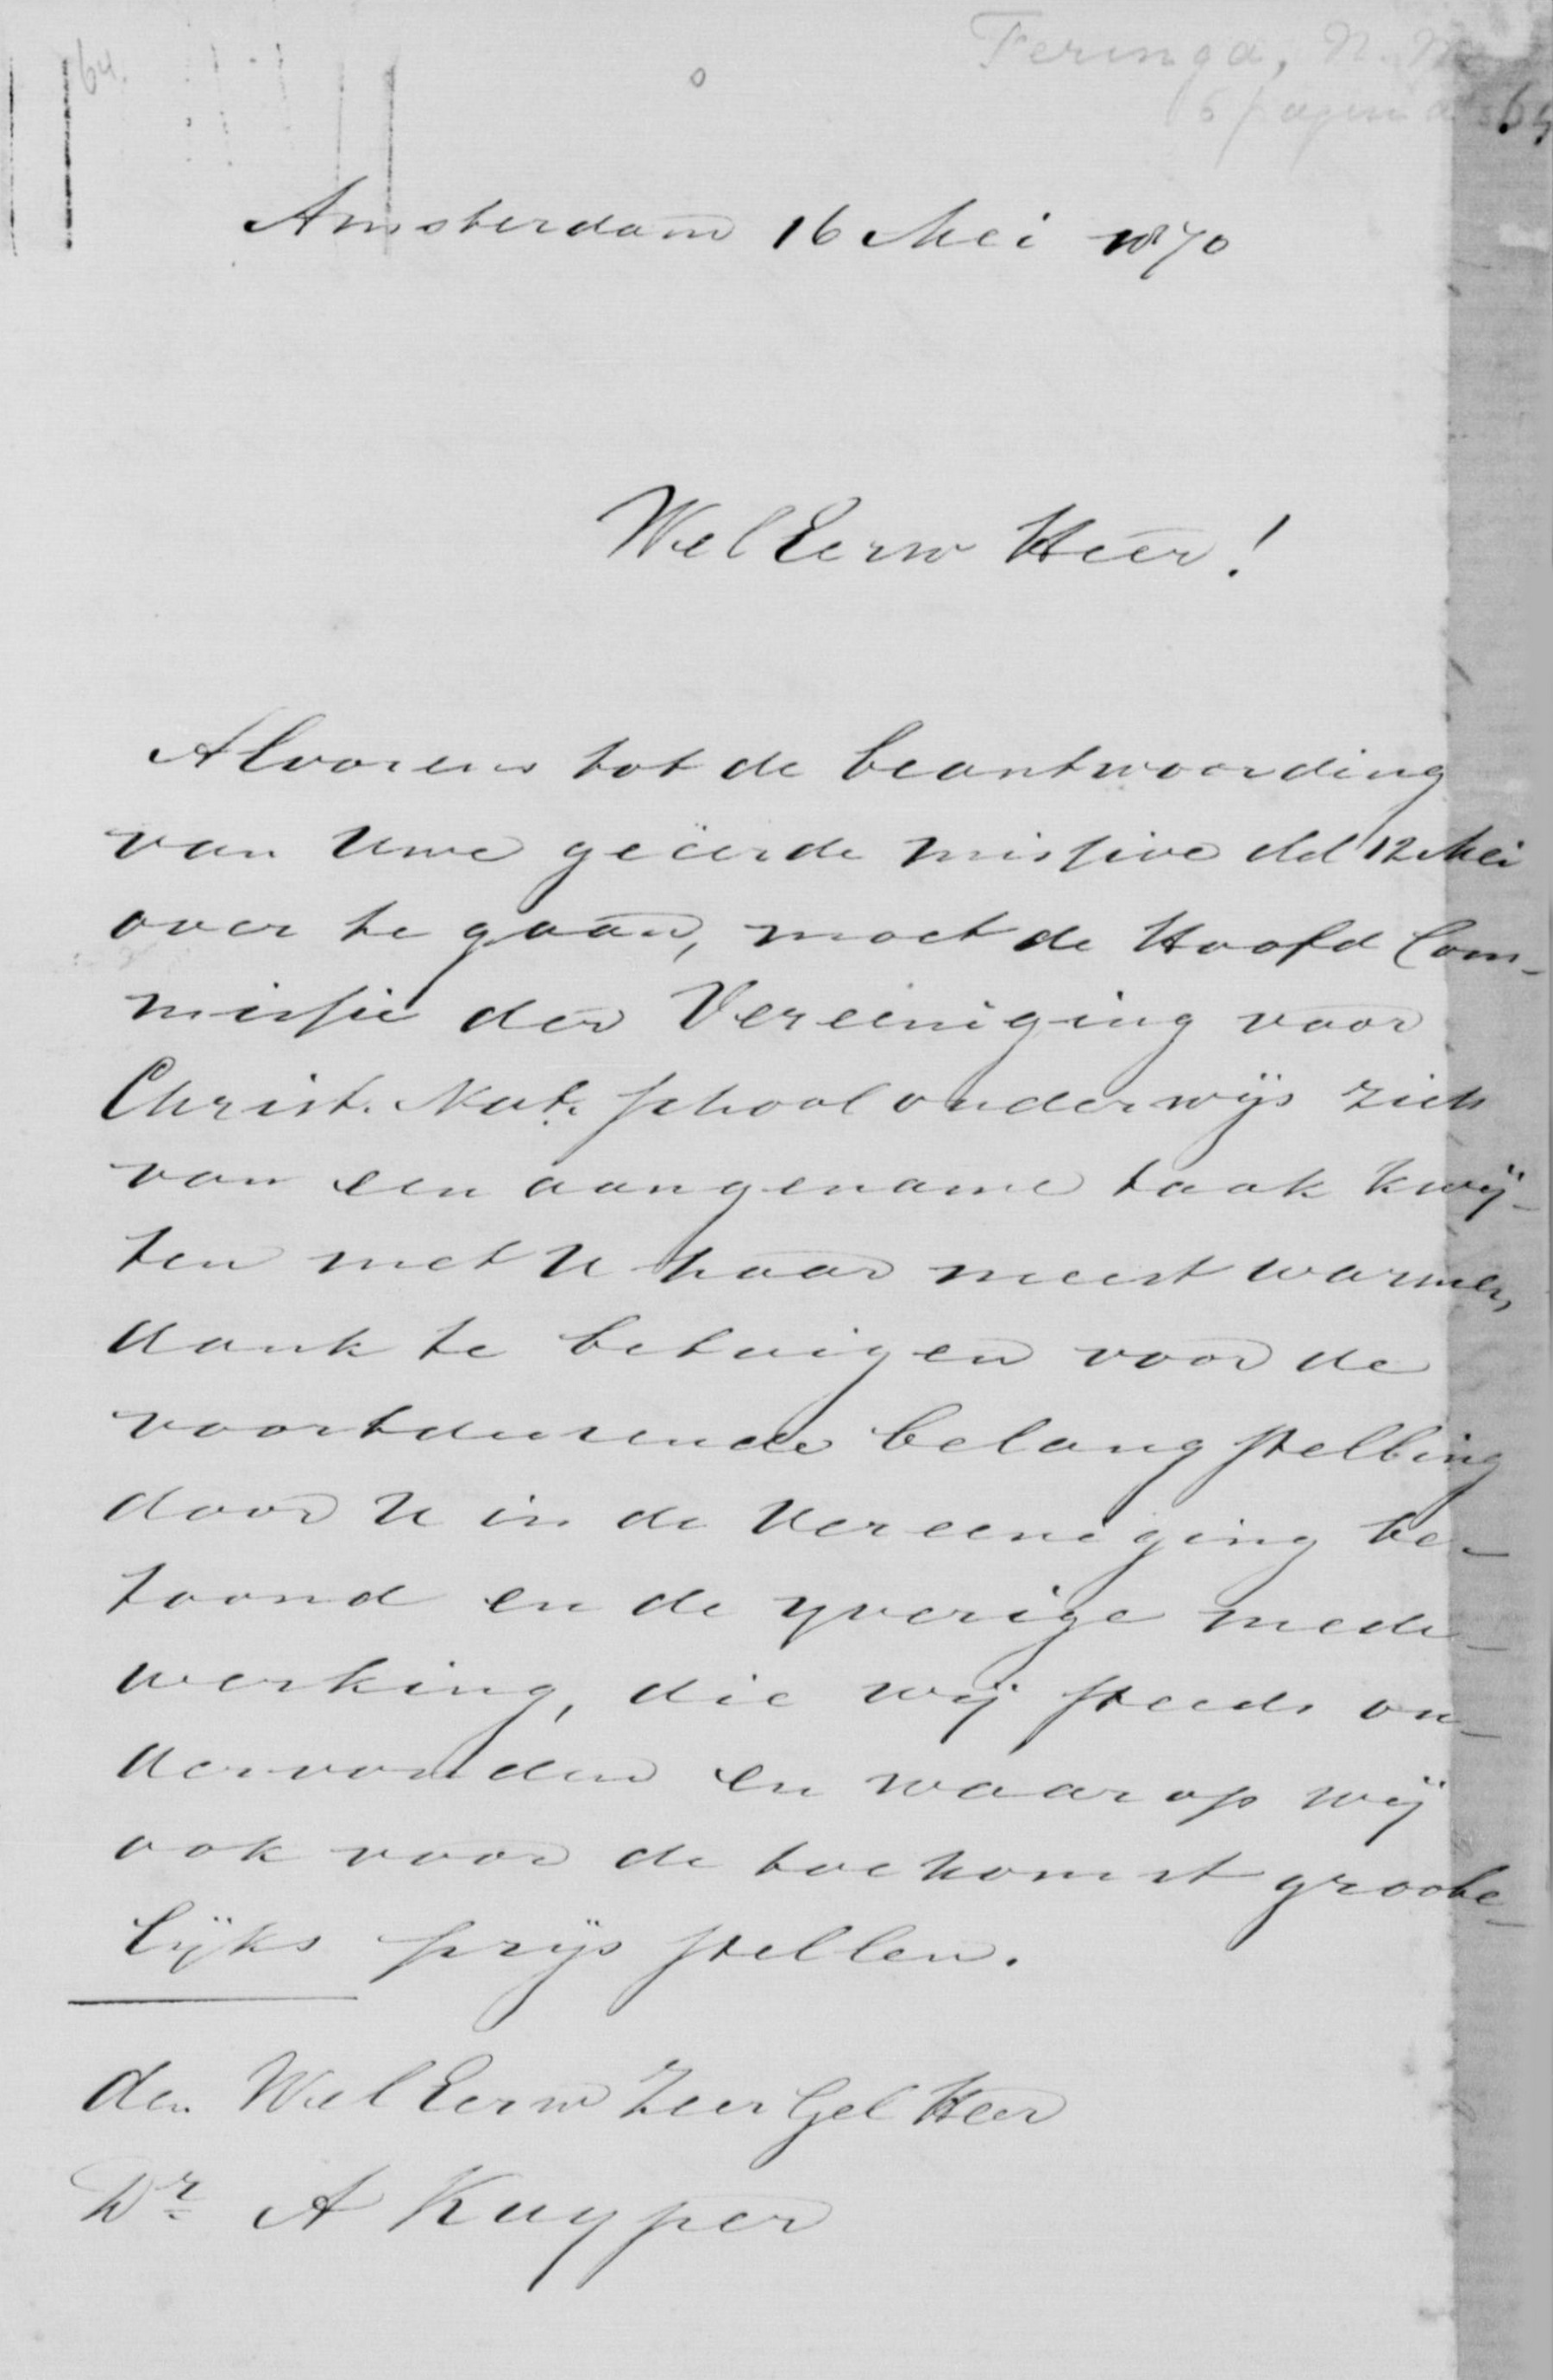 64.
Feringa, N. M.
Amsterdam 16 Mei 1870
WelEerw Heer!
Alvorens tot de beantwoording
van Uwe geëerde missive dd 12 Mei
over te gaan, moet de Hoofd Com-
missie der Vereeniging voor
Christ. Nat. schoolonderwijs zich
van een aangename taak kwij-
ten met U haar meest warmen
dank te betuigen voor de
voortdurende belangstelling
door U in de Vereeniging be-
toond en de yverige mede-
werking, die wij steeds on-
dervonden en waarop wij
ook voor de toekomst groote-
lijks prijs stellen.
den WelEerw ZeerGel Heer
Dr A Kuyper